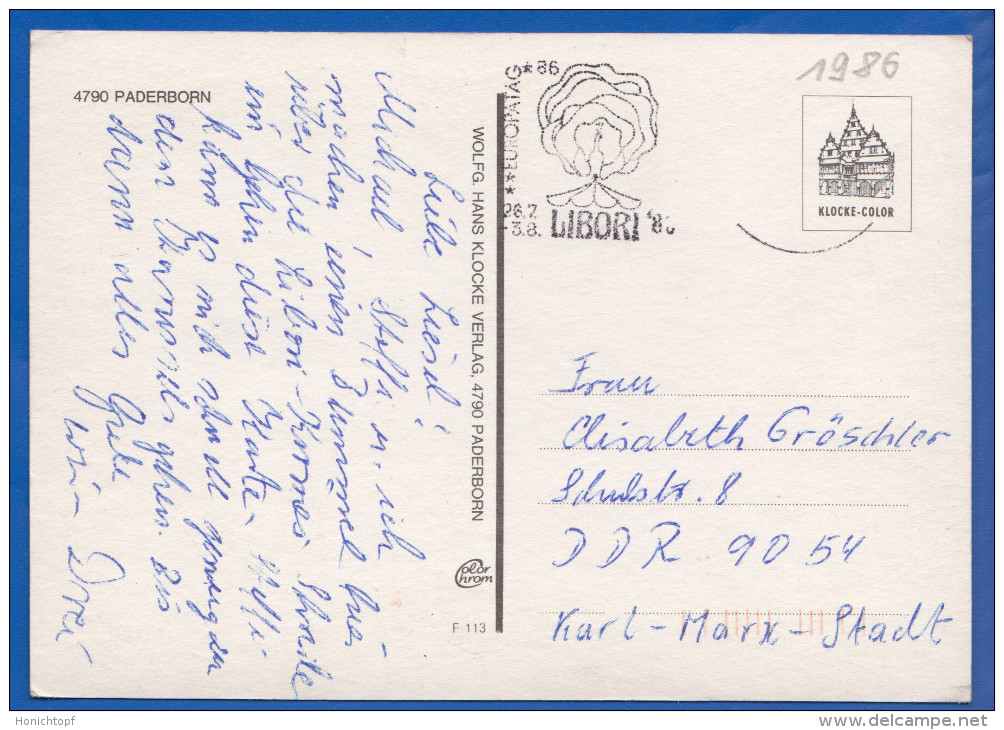 4790 PADERBORN
Liebe Liesel!
Michael, Steffi u. ich
machen einen Bummel hier
über die Libori-Kirmes. Steffi
will
kann es mich schnell genug zu
den Karussells gehen. Bis
dann alles Gute
WOLFG. HANS KLOCKE VERLAG, 4790 PADERBORN
Color Chrom
F 113
***EUROPATAG*86
26.7.
-3.8.
LIBORI '86
1986
KLOCKE-COLOR
Frau
Elisabeth Gröschler
Schulstr. 8
DDR 9054
Karl-Marx-Stadt
Honichtopf
delcampe.net